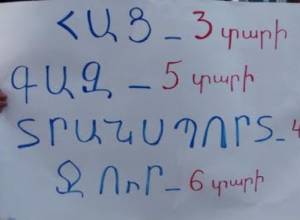 ՀԱՑ – 3 տարի
ԳԱԶ – 5 տարի
ՏՐԱՆՍՊՈՐՏ – 4
ՋՈւՐ – 6 տարի